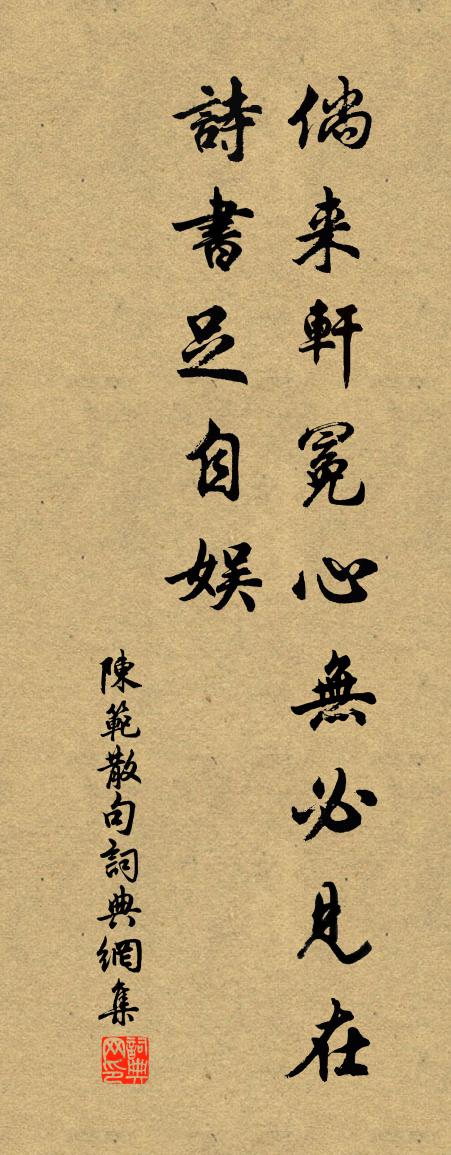 倘来軒冕心無必見在
詩書足自娱
陳範散句詞典網集
詞典网印